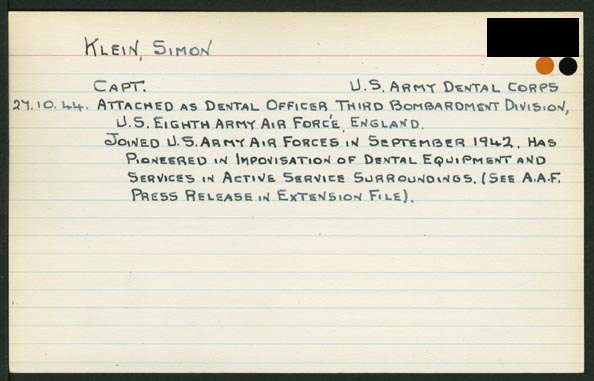 KLEIN, SIMON
CAPT. U.S. ARMY DENTAL CORPS
27.10.44. ATTACHED AS DENTAL OFFICER THIRD BOMBARDMENT DIVISION,
U.S. EIGHTH ARMY AIR FORC'E, ENGLAND.
JOINED U.S. ARMY AIR FORCES IN SEPTEMBER 1942. HAS
PIONEERED IN IMPOVISATION OF DENTAL EQUIPMENT AND
SERVICES IN ACTIVE SERVICE SURROUNDINGS. (SEE A.A.F.
PRESS RELEASE IN EXTENSION FILE).